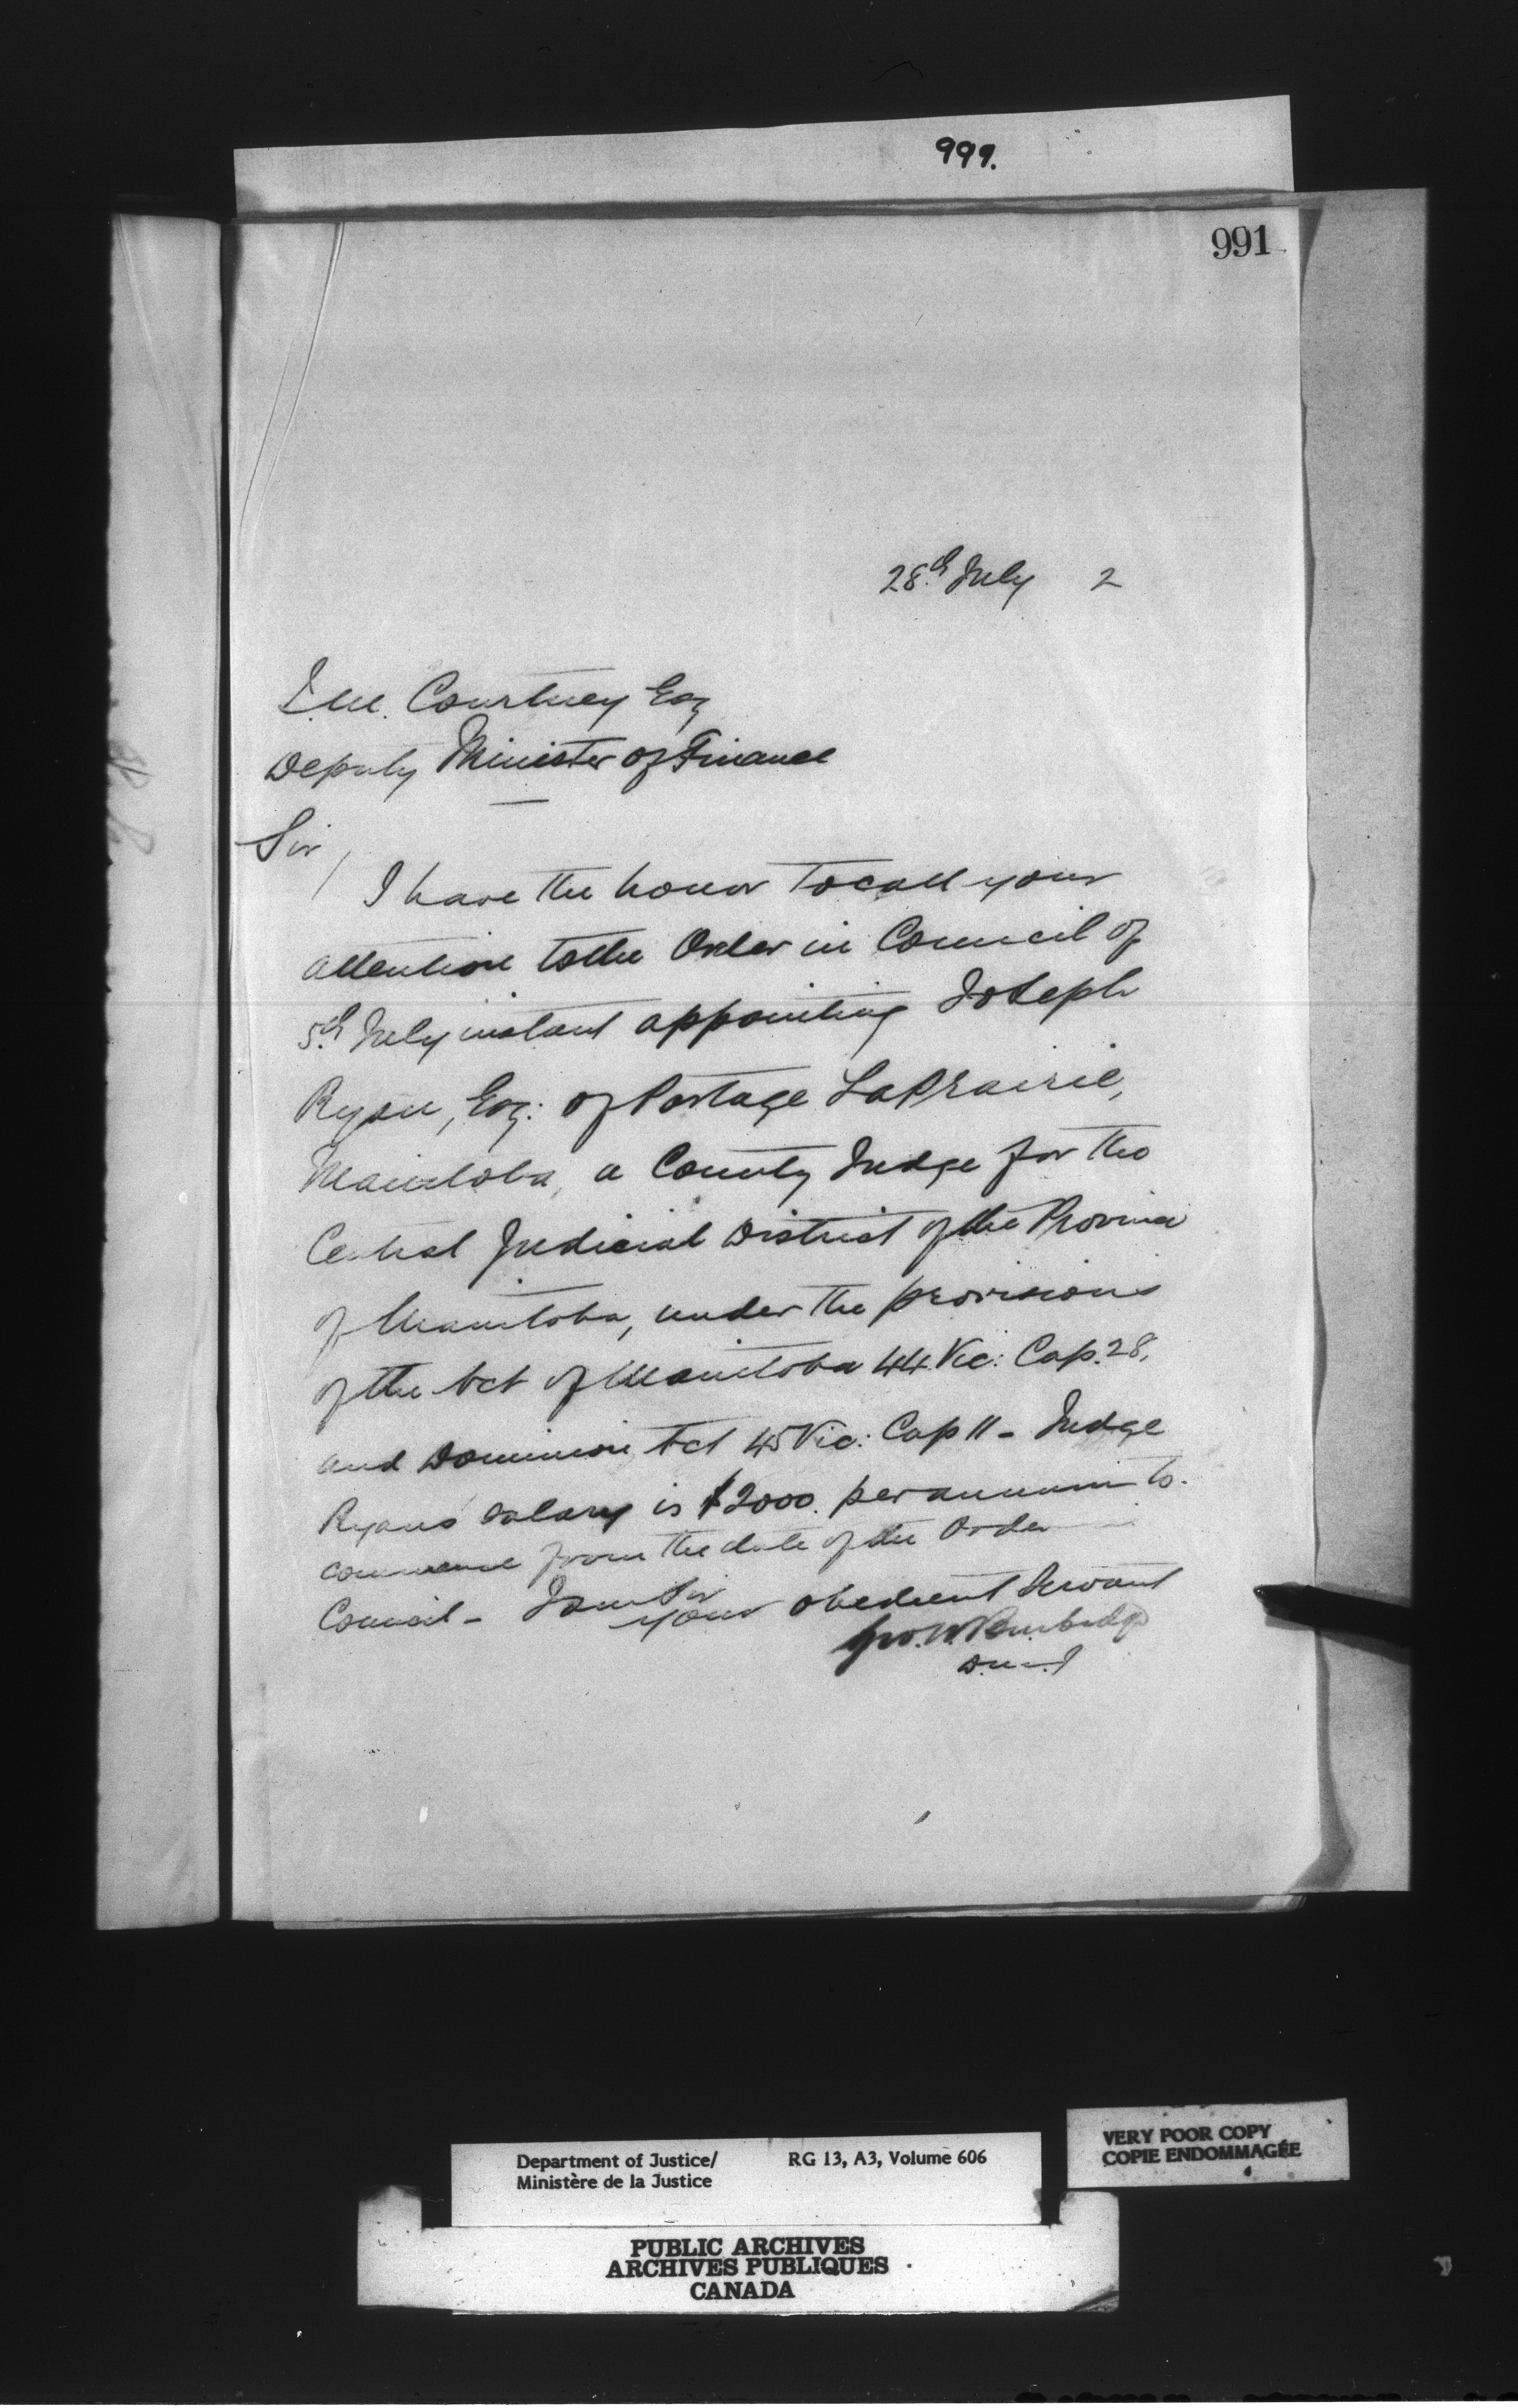 999.
991
28th July 2
J.M. Courtney Esq
Deputy Minister of Finance
Sir,
I have the honor to call your
attention to the Order in Council of
5th July instant appointing Joseph
Ryan, Esq: of Portage LaPrairie,
Manitoba, a County Judge for the
Central Judicial District of the Province
of Manitoba, under the provisions
of the Act of Manitoba 44 Vic: Cap. 28,
and Dominion Act 45 Vic: Cap 11 - Judge
Ryans' salary is $2000. per annum to
commence from the date of the Order
Council - I am Sir
your obedient Servant
Geo. W. Burbidge
D.M.J
VERY POOR COPY
COPIE ENDOMMAGÉE
Department of Justice/ RG 13, A3, Volume 606
Ministère de la Justice
PUBLIC ARCHIVES
ARCHIVES PUBLIQUES
CANADA